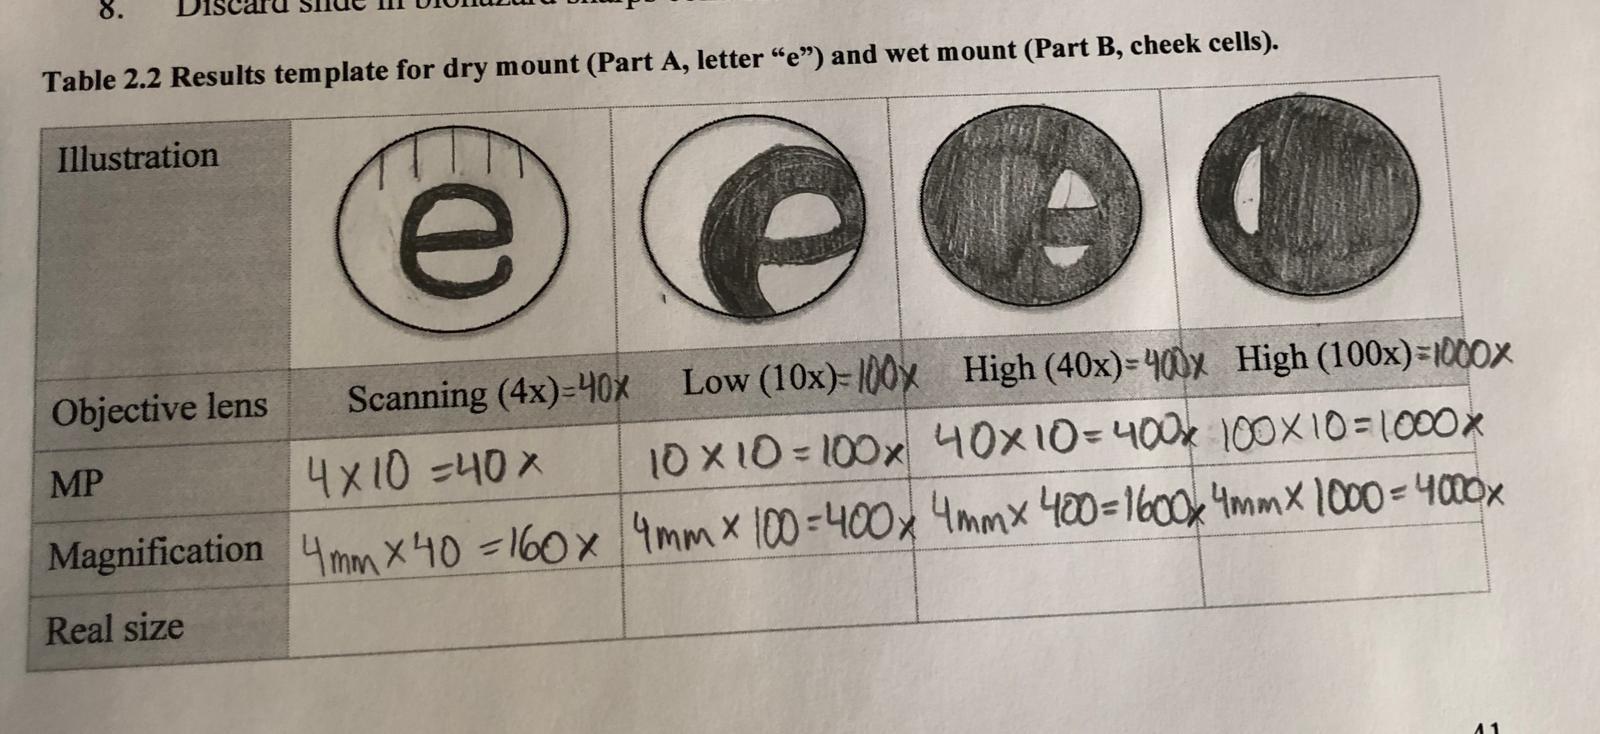 8. Discard slide in biohazard sharps
Table 2.2 Results template for dry mount (Part A, letter “e”) and wet mount (Part B, cheek cells).
Illustration
e e e
Objective lens Scanning (4x)=40x Low (10x)=100x High (40x)=400x High (100x)=1000x
MP 4 x 10 = 40 x 10 x 10 = 100x 40x10=400x 100x10=1000x
Magnification 4mm x 40 = 160 x 4mm x 100=400x 4mm x 400=1600x 4mm x 1000=4000x
Real size
41